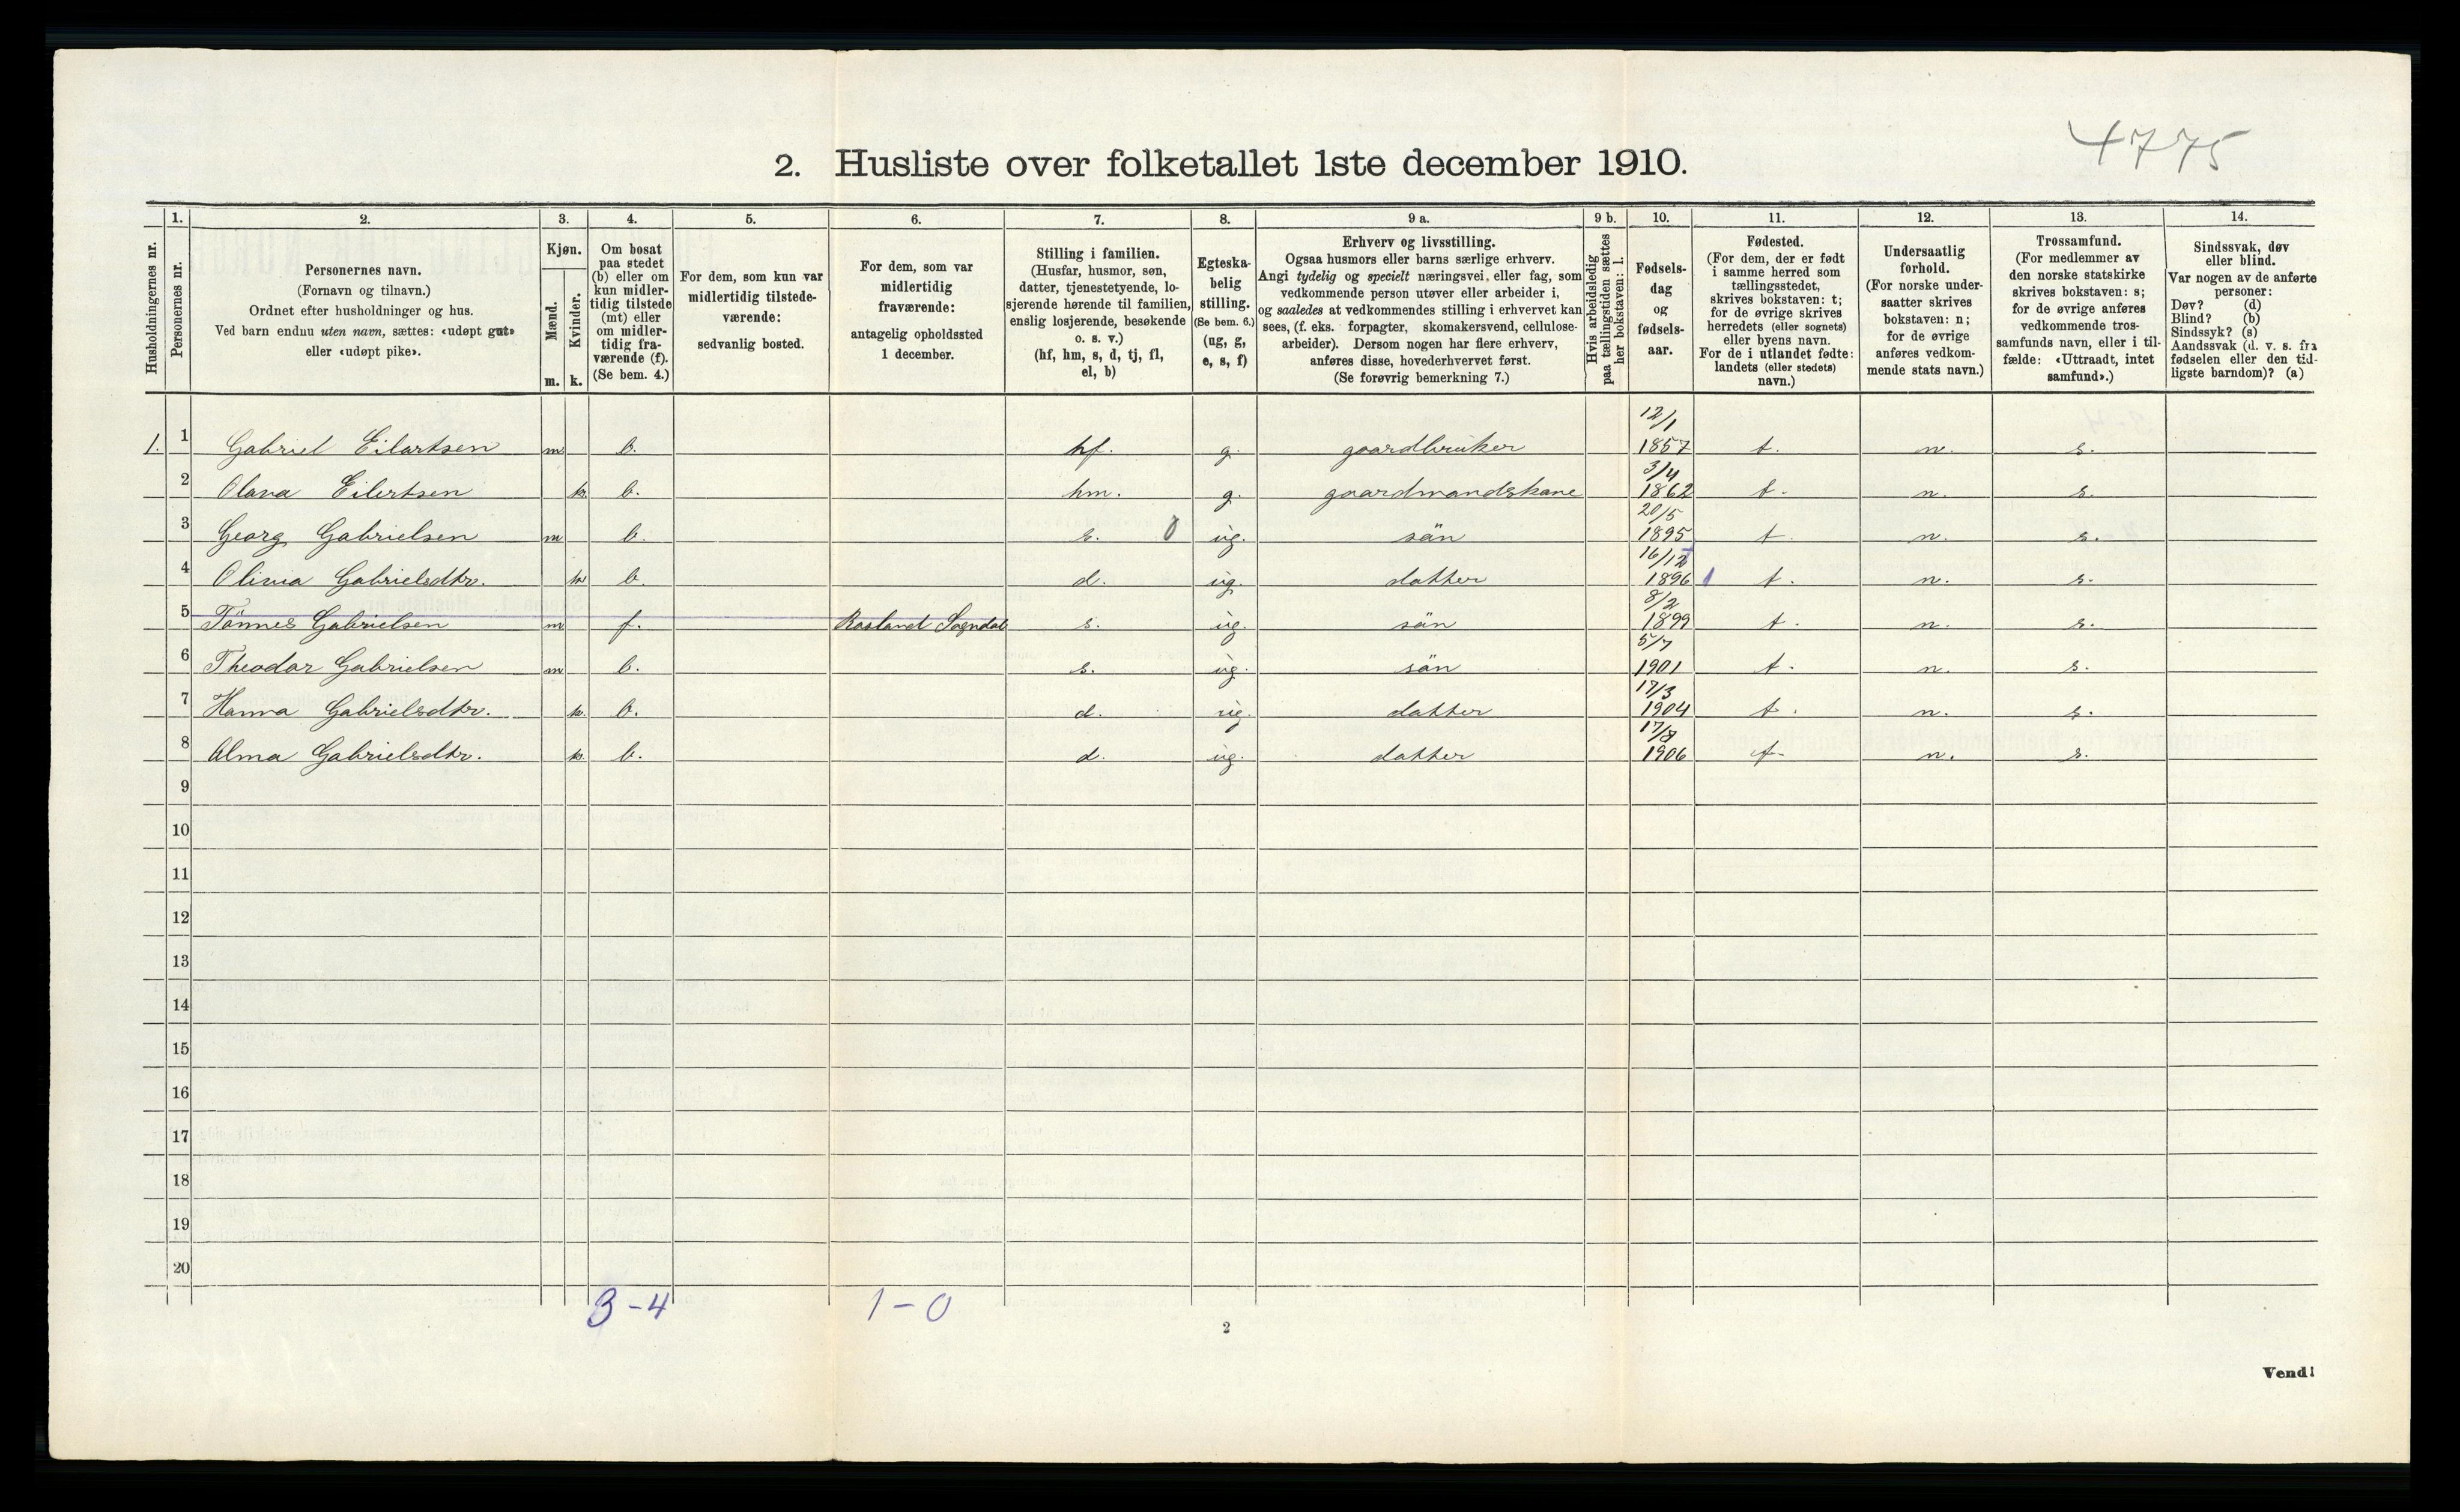 4775
2. Husliste over folketallet 1ste december 1910.
Husholdningernes nr.
1.
Personernes nr.
2.
Personernes navn.
(Fornavn og tilnavn.)
Ordnet efter husholdninger og hus.
Ved barn endnu uten navn, sættes: «udøpt gut»
eller «udøpt pike».
3.
Kjøn.
Mænd.
m.
Kvinder.
k.
4.
Om bosat
paa stedet
(b) eller om
kun midler-
tidig tilstede
(mt) eller
om midler-
tidig fra-
værende (f).
(Se bem. 4.)
5.
For dem, som kun var
midlertidig tilstede-
værende:
sedvanlig bosted.
6.
For dem, som var
midlertidig
fraværende:
antagelig opholdssted
1 december.
7.
Stilling i familien.
(Husfar, husmor, søn,
datter, tjenestetyende, lo-
sjerende hørende til familien,
enslig losjerende, besøkende
o. s. v.)
(hf, hm, s, d, tj, fl,
el, b)
8.
Egteska-
belig
stilling.
(Se bem. 6.)
(ug, g,
e, s, f)
9 a.
Erhverv og livsstilling.
Ogsaa husmors eller barns særlige erhverv.
Angi tydelig og specielt næringsvei, eller fag, som
vedkommende person utøver eller arbeider i,
og saaledes at vedkommendes stilling i erhvervet kan
sees, (f. eks. forpagter, skomakersvend, cellulose-
arbeider). Dersom nogen har flere erhverv,
anføres disse, hovederhvervet først.
(Se forøvrig bemerkning 7.)
9 b.
Hvis arbeidsledig
paa tællingstiden sættes
her bokstaven: l.
10.
Fødsels-
dag
og
fødsels-
aar.
11.
Fødested.
(For dem, der er født
i samme herred som
tællingsstedet,
skrives bokstaven: t;
for de øvrige skrives
herredets (eller sognets)
eller byens navn.
For de i utlandet fødte:
landets (eller stedets)
navn.)
12.
Undersaatlig
forhold.
(For norske under-
saatter skrives
bokstaven: n;
for de øvrige
anføres vedkom-
mende stats navn.)
13.
Trossamfund.
(For medlemmer av
den norske statskirke
skrives bokstaven: s;
for de øvrige anføres
vedkommende tros-
samfunds navn, eller i til-
fælde: «Uttraadt, intet
samfund».)
14.
Sindssvak, døv
eller blind.
Var nogen av de anførte
personer:
Døv? (d)
Blind? (b)
Sindssyk? (s)
Aandssvak (d. v. s. fra
fødselen eller den tid-
ligste barndom)? (a)
1. 1 Gabriel Eilartsen m b. hf. g. gaardbruker 12/1 1857 t. n. s.
2 Olava Eilertsen k. b. hm. g. gaardmandskone 3/4 1862 t. n. s.
3 Georg Gabrielsen m b. s. 0 ug. sön 20/5 1895 t. n. s.
4 Olivia Gabrielsdtr. k b. d. ug. datter 16/12 1896 t. n. s.
5 Tönnes Gabrielsen m f. Rosland Sogndal s. ug. sön 8/2 1899 t. n. s.
6 Theodor Gabrielsen m b. s. ug. sön 5/7 1901 t. n. s.
7 Hanna Gabrielsdtr. k. b. d. ug. datter 17/3 1904 t. n. s.
8 Alma Gabrielsdtr. k. b. d. ug. datter 17/8 1906 t n. s.
9
10
11
12
13
14
15
16
17
18
19
20
3-4 1-0
2
Vend!